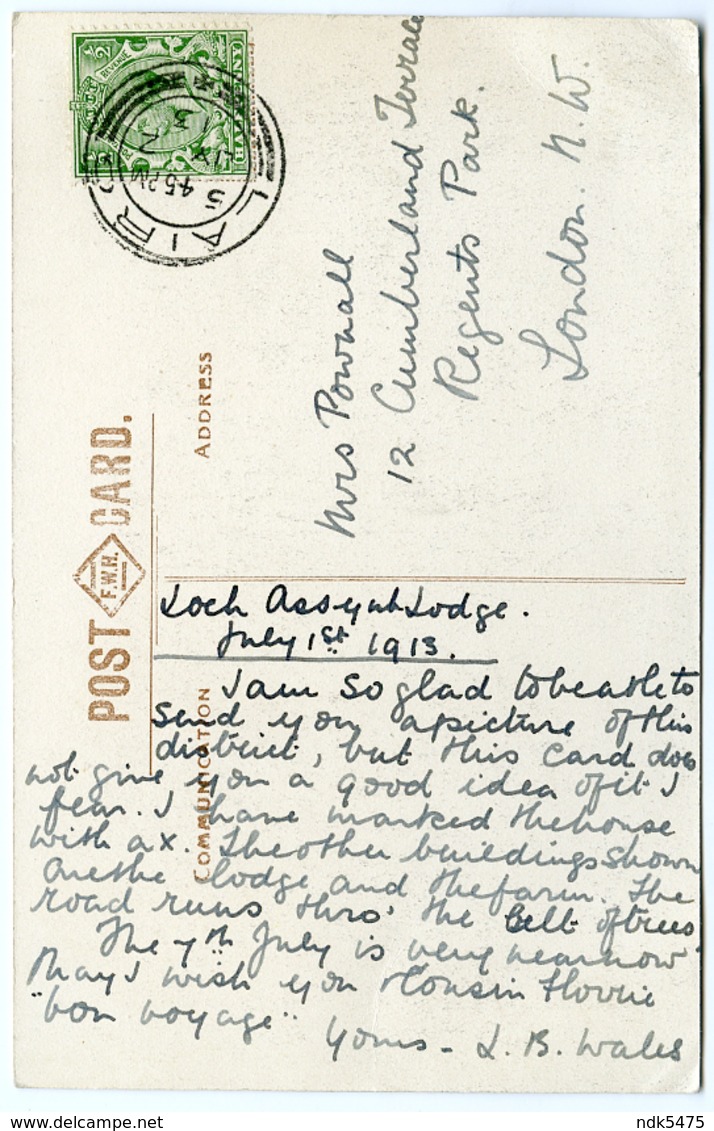 POST CARD.
F.W.H.
ADDRESS
COMMUNICATION
REVENUE
LAIRG
5 45 PM
Mrs Pownall
12 Cumberland Terrace
Regents Park.
London. N.W.
Loch Assynt Lodge.
July 1st 1913.
I am so glad to be able to
send you a picture of this
district, but this card does
not give you a good idea of it I
fear. I have marked the house
with a x. The other buildings shown
are the lodge and the farm. The
road runs thro' the belt of trees
The 7th July is very near now
May I wish you & Cousin Florrie
"bon voyage"
Yours - L. B. Wales
ndk5475